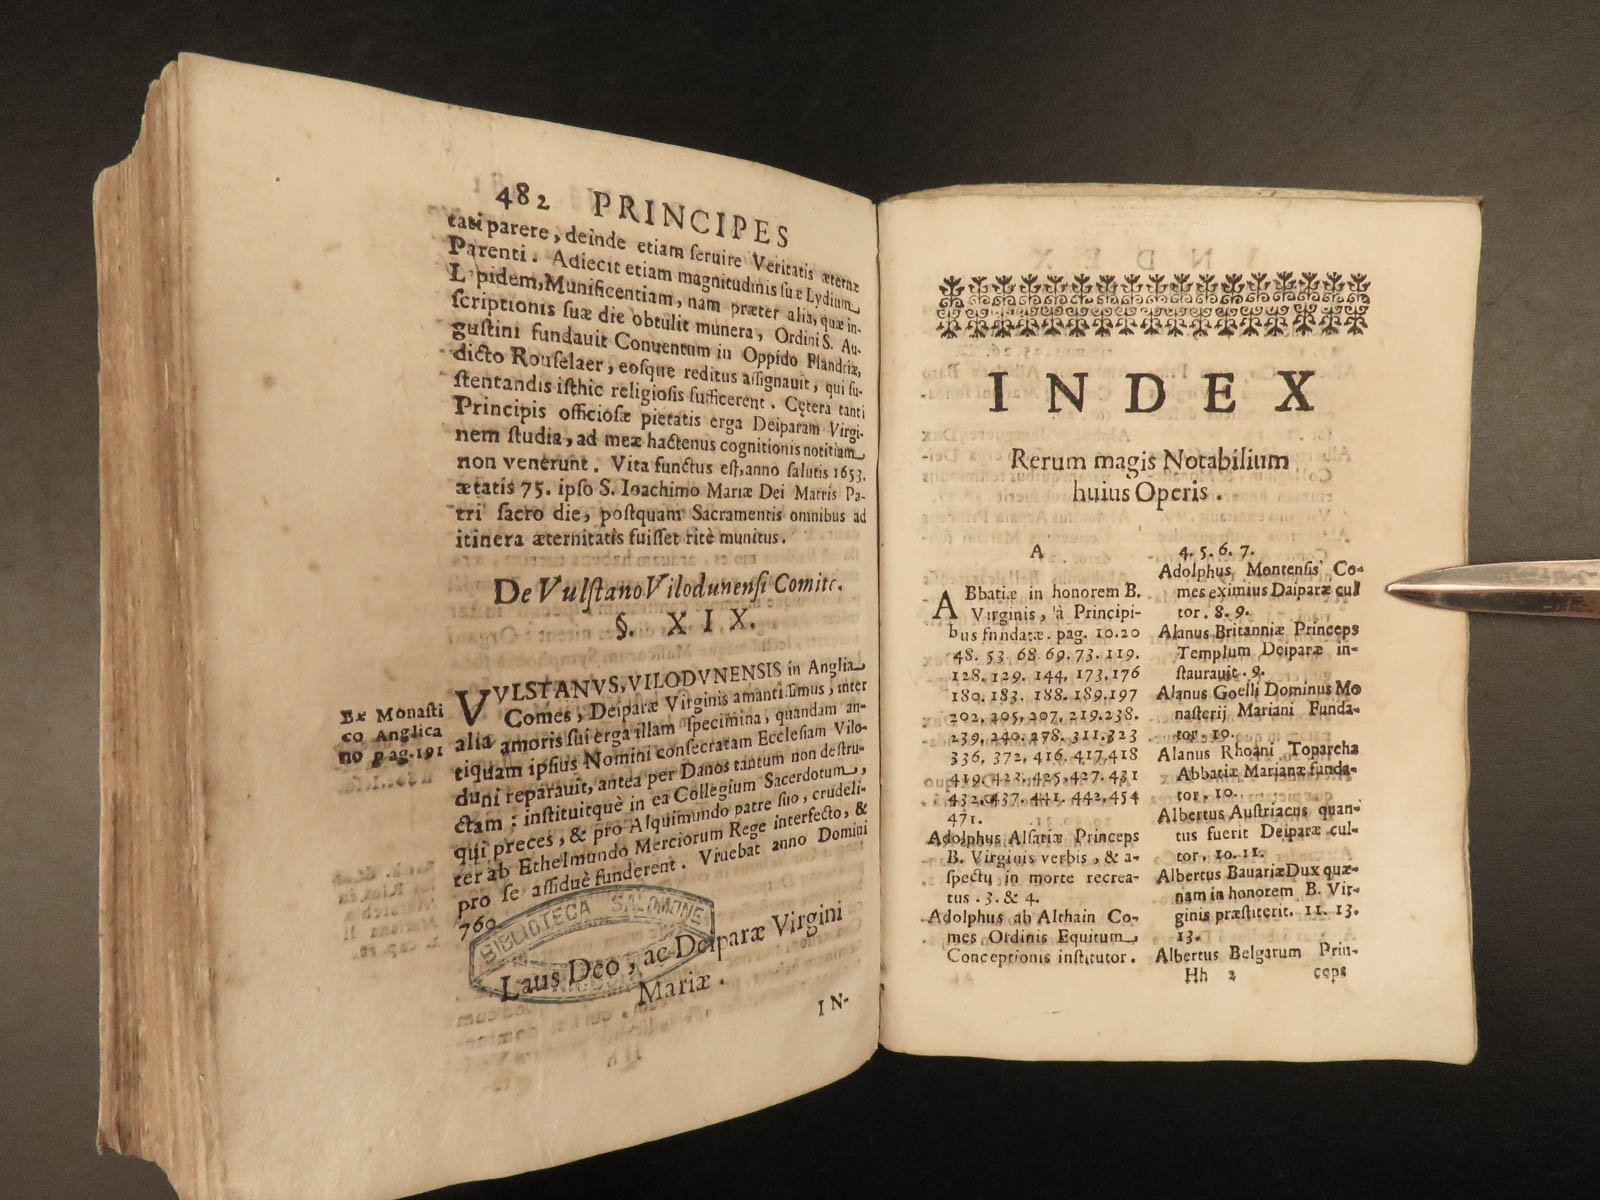 482 PRINCIPES
tati parere, deinde etiam ſeruire Veritatis æternæ
Parenti. Adiecit etiam magnitudinis ſuæ Lydium
Lapidem, Munificentiam, nam præter alia, quæ in-
ſcriptionis ſuæ die obtulit munera, Ordini S. Au-
guſtini fundauit Conuentum in Oppido Flandriæ,
dicto Rouſelaer, eoſque reditus aſſignauit, qui ſu-
ſtentandis iſthic religioſis ſufficerent. Cętera tanti
Principis officioſæ pietatis erga Deiparam Virgi-
nem ſtudia, ad meæ hactenus cognitionis notitiam
non venerunt. Vita functus eſt, anno ſalutis 1653.
ætatis 75. ipſo S. Ioachimo Mariæ Dei Matris Pa-
tri ſacro die, poſtquam Sacramentis omnibus ad
itinera æternitatis fuiſſet ritè munitus.
De Vulſtano Vilodunenſi Comite.
§. XIX.
Ex Monaſti
co Anglica
no pag. 191
VVLSTANVS, VILODVNENSIS in Anglia
Comes, Deiparæ Virginis amantiſſimus, inter
alia amoris ſui erga illam ſpecimina, quandam an-
tiquam ipſius Nomini conſecratam Eccleſiam Vilo-
duni reparauit, antea per Danos tantum non deſtru-
ctam: inſtituitquè in ea Collegium Sacerdotum,
qui preces, & pro Alquimundo patre ſuo, crudeli-
ter ab Ethelmundo Merciorum Rege interfecto, &
pro ſe aſſiduè funderent. Viuebat anno Domini
760
BIBLIOTECA SALOMONE
Laus Deo, ac Deiparæ Virgini
Mariæ.
IN-
INDEX
Rerum magis Notabilium
huius Operis.
A
ABbatiæ in honorem B.
Virginis, à Principi-
bus fundatæ. pag. 10.20
48. 53. 68. 69. 73. 119.
128. 129. 144, 173, 176
180. 183. 188. 189. 197
202, 205, 207, 219. 238.
239, 240. 278, 311. 323
336, 372, 416. 417, 418
419. 423. 425, 427. 431
432, 437. 441. 442, 454
471.
Adolphus Alſatiæ Princeps
B. Virginis verbis, & a-
ſpectu in morte recrea-
tus. 3. & 4.
Adolphus ab Althain Co-
mes Ordinis Equitum
Conceptionis inſtitutor.
4. 5. 6. 7.
Adolphus Montenſis Co-
mes eximius Daiparæ cul
tor. 8. 9.
Alanus Britanniæ Princeps
Templum Deiparæ in-
ſtaurauit. 9.
Alanus Goelli Dominus Mo
naſterij Mariani Funda-
tor. 10.
Alanus Rhoani Toparcha
Abbatiæ Marianæ funda-
tor. 10.
Albertus Auſtriacus quan-
tus fuerit Deiparæ cul-
tor, 10. 11.
Albertus Bauariæ Dux quæ-
nam in honorem B. Vir-
ginis præſtiterit. 11. 13.
13.
Albertus Belgarum Prin-
Hh 2 ceps